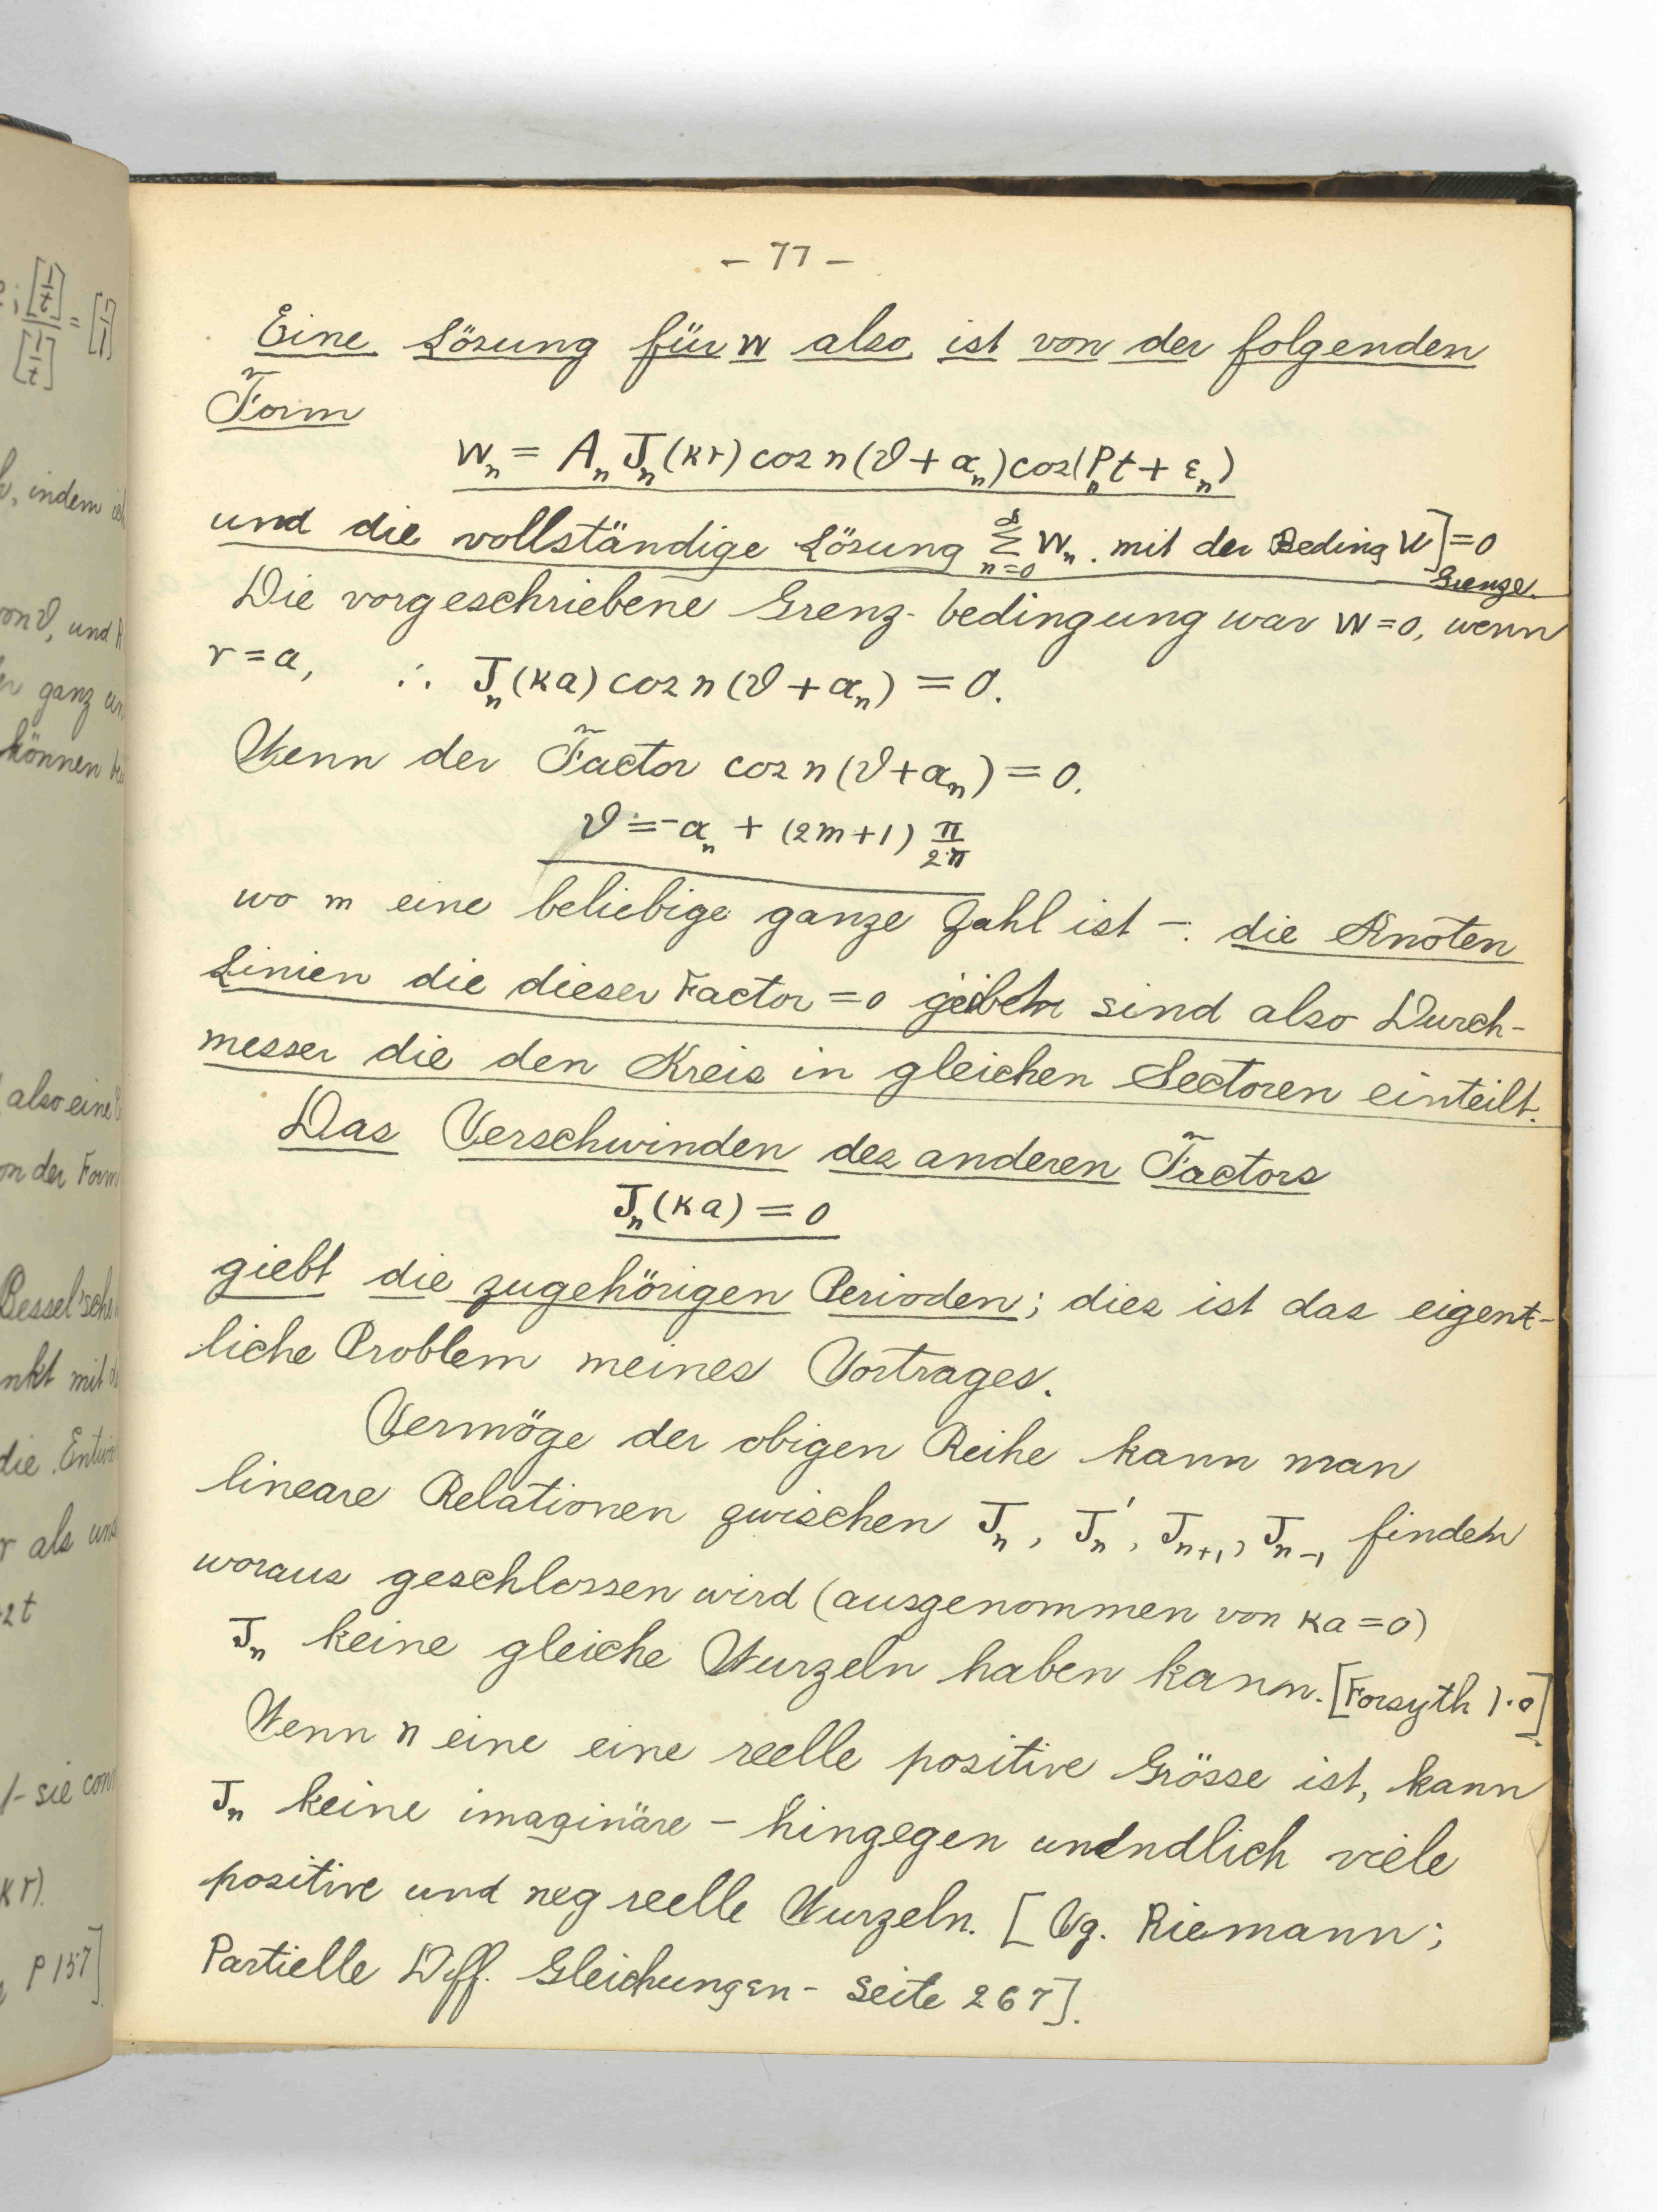 – 77 –
Eine Lösung für w also ist von der folgenden
Form
w_n = A_n J_n(κr) cos n(ϑ + α_n) cos(p_n t + ε_n)
und die vollständige Lösung Σ_{n=0}^{∞} w_n . mit der Beding w]_{Grenze.} = 0
Die vorgeschriebene Grenz-bedingung war w = 0, wenn
r = a, ∴ J_n(κa) cos n(ϑ + α_n) = 0.
Wenn der Factor cos n(ϑ + α_n) = 0.
ϑ = -α_n + (2m+1) π/2n
wo m eine beliebige ganze Zahl ist – : die Knoten
Linien die dieser Factor = 0 sind also Durch-
messer die den Kreis in gleichen Sectoren einteilt.
Das Verschwinden des anderen Factors
J_n(κa) = 0
giebt die zugehörigen Perioden; dies ist das eigent-
liche Problem meines Vortrages.
Vermöge der obigen Reihe kann man
lineare Relationen zwischen J_n, J_n', J_{n+1}, J_{n-1} finden
woraus geschlossen wird (ausgenommen von κa = 0)
J_n keine gleiche Wurzeln haben kann. [Forsyth
Wenn n eine eine reelle positive Grösse ist, kann
J_n keine imaginäre – hingegen unendlich viele
positive und neg reelle Wurzeln. [Vg. Riemann;
Partielle Diff. Gleichungen – Seite 267].